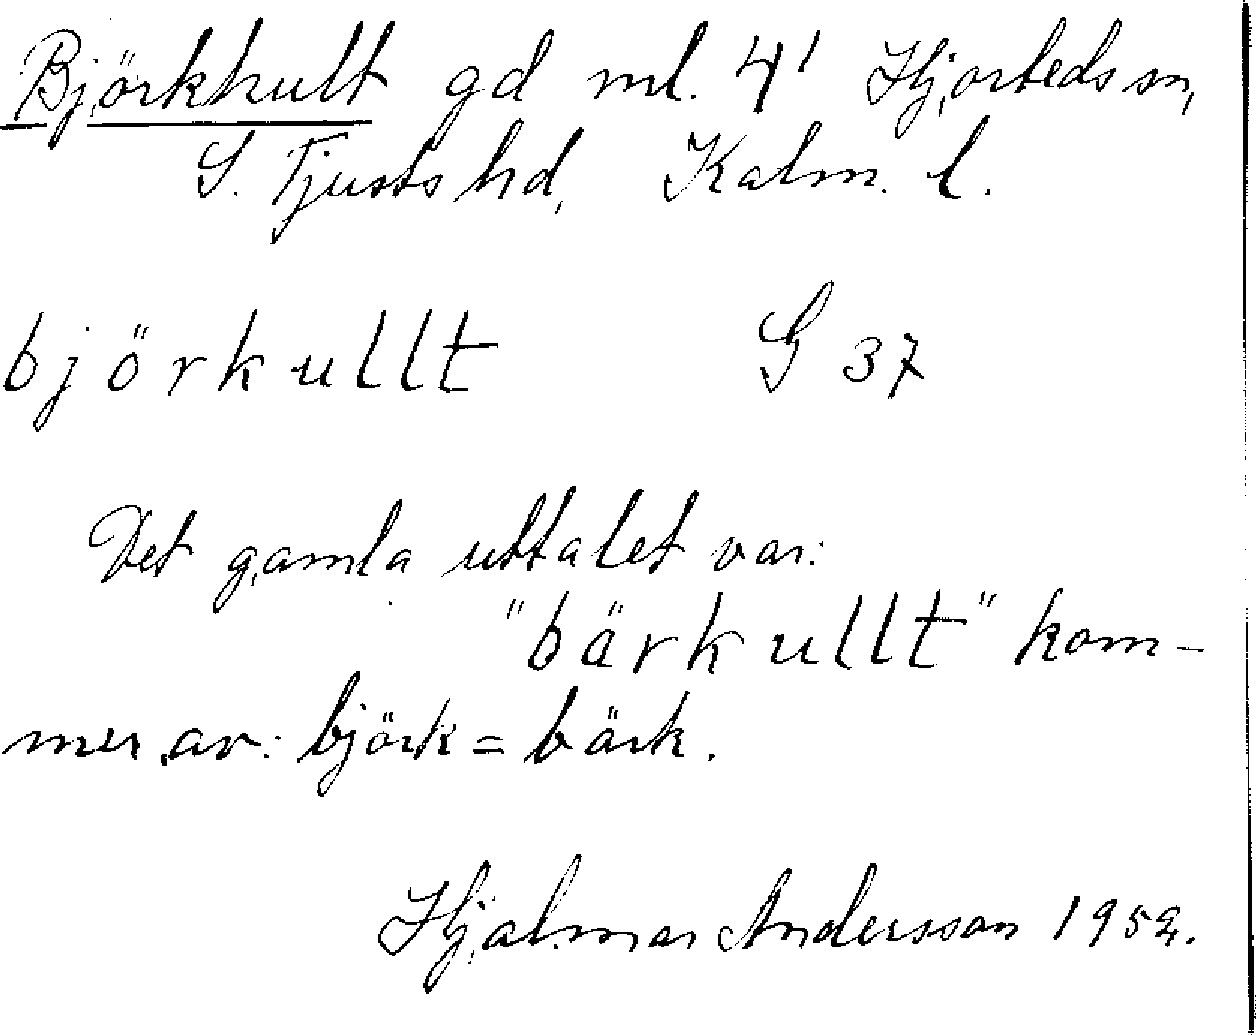 Björkhult gd ml. 4¹ Hjorteds sn,
S. Tjusts hd, Kalm. l.
björkullt G 37
Det gamla uttalet var:
"bärkullt" kom-
mer av: björk = bärk.
Hjalmar Andersson 1952.